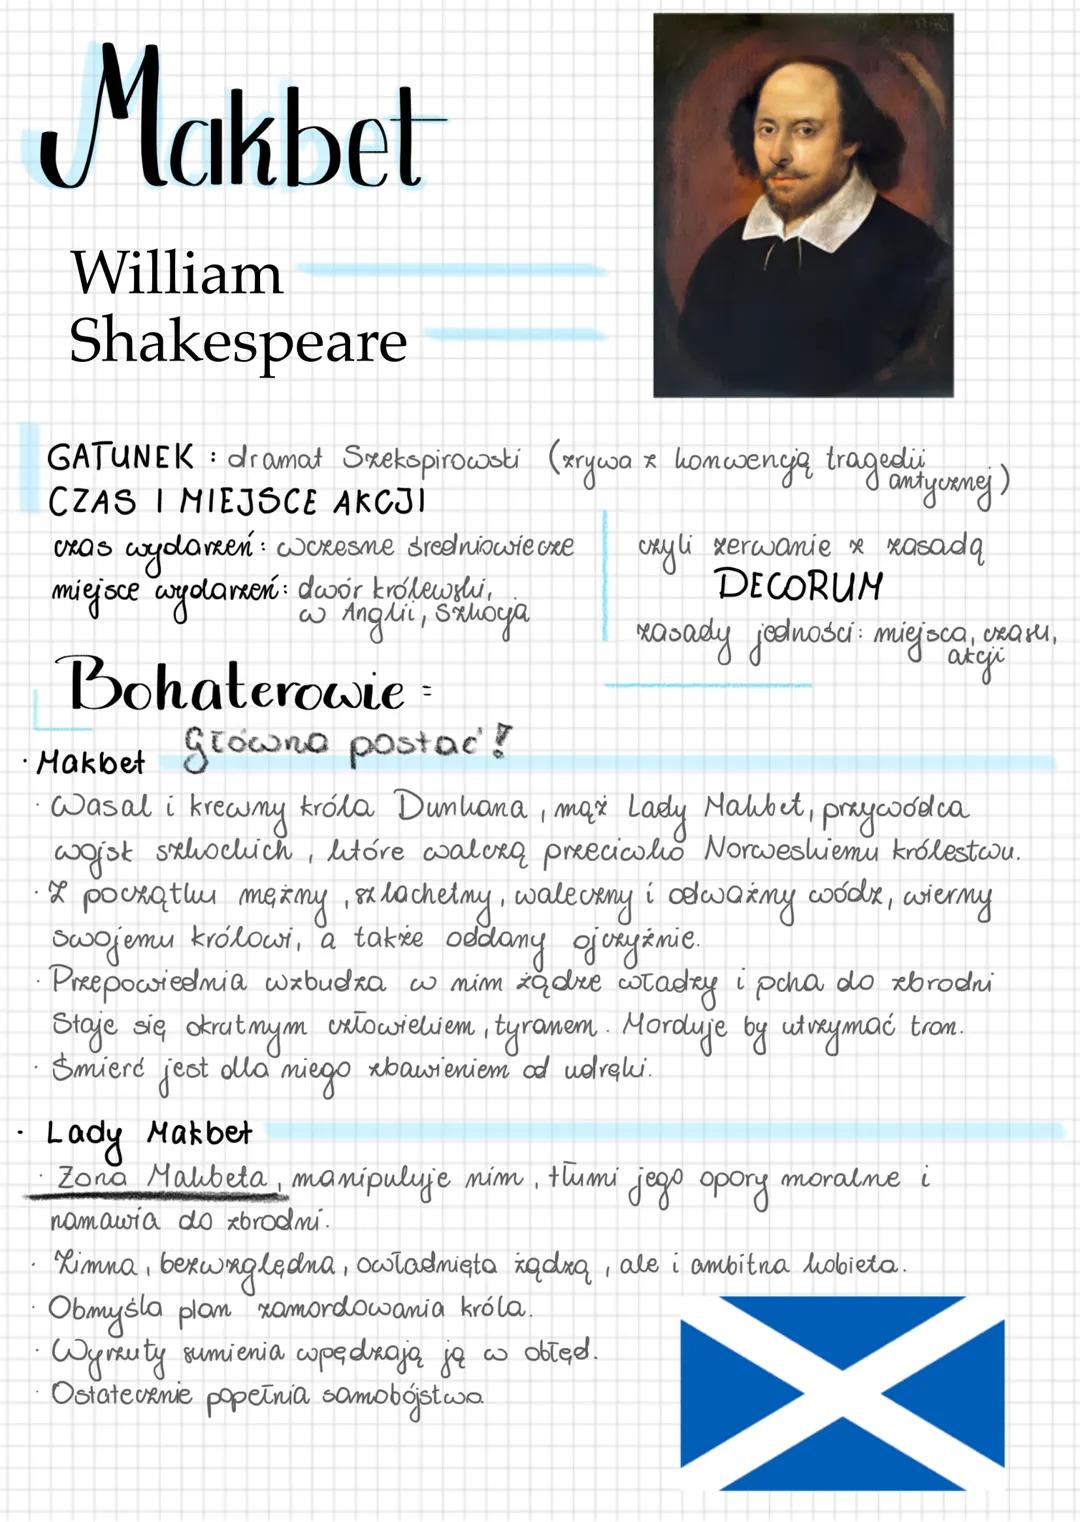 Makbet
William
Shakespeare
GATUNEK : dramat Szekspirowski (zrywa z konwencją tragedii antycznej)
CZAS I MIEJSCE AKCJI
czas wydarzeń: wczesne średniowiecze
miejsce wydarzeń: dwór królewski,
w Anglii, Szkocja
czyli zerwanie z zasadą
DECORUM
zasady jedności: miejsca, czasu,
akcji
Bohaterowie:
· Makbet główna postać!
· Wasal i krewny króla Dunkana, mąż Lady Makbet, przywódca
wojsk szkockich, które walczą przeciwko Norweskiemu królestwu.
· Z początku mężny, szlachetny, waleczny i odważny wódz, wierny
swojemu królowi, a także oddany ojczyźnie.
· Przepowiednia wzbudza w nim żądze władzy i pcha do zbrodni
Staje się okrutnym człowiekiem, tyranem. Morduje by utrzymać tron.
· Śmierć jest dla niego zbawieniem od udręki.
· Lady Makbet
· Żona Makbeta, manipuluje nim, tłumi jego opory moralne i
namawia do zbrodni.
· Zimna, bezwzględna, owładnięta żądzą, ale i ambitna kobieta.
· Obmyśla plan zamordowania króla.
· Wyrzuty sumienia wpędzają ją w obłęd.
· Ostatecznie popełnia samobójstwo